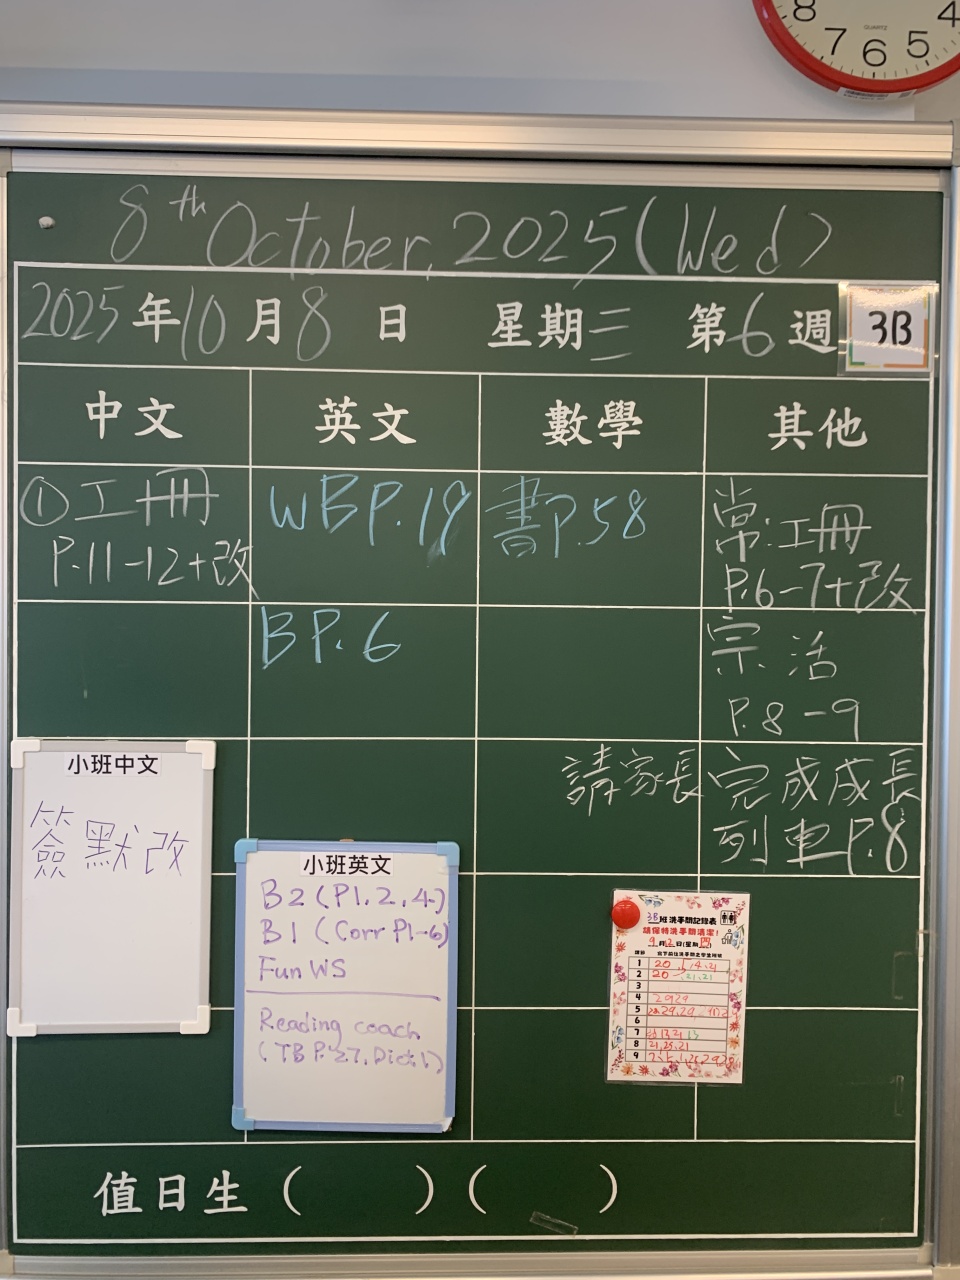 8
4
7
6
5
QUARTZ
8th October, 2025 (Wed)
2025年10月8日 星期三 第6週 3B
中文 英文 數學 其他
①工冊
P.11-12+改
WB P.19
書P.58
常:工冊
P.6-7+改
B P.6
宗 活
P.8-9
請家長完成成長
列車P.8
小班中文
簽默改
小班英文
B2 (P1, 2, 4)
B1 (Corr P1-6)
Fun WS
Reading coach
(TB P.27, Dict.1)
3B班洗手間記錄表
請保持洗手間清潔！
1
2
3
4 29 29
5
6
7
8 21, 25, 21
9
值日生（ ）（ ）